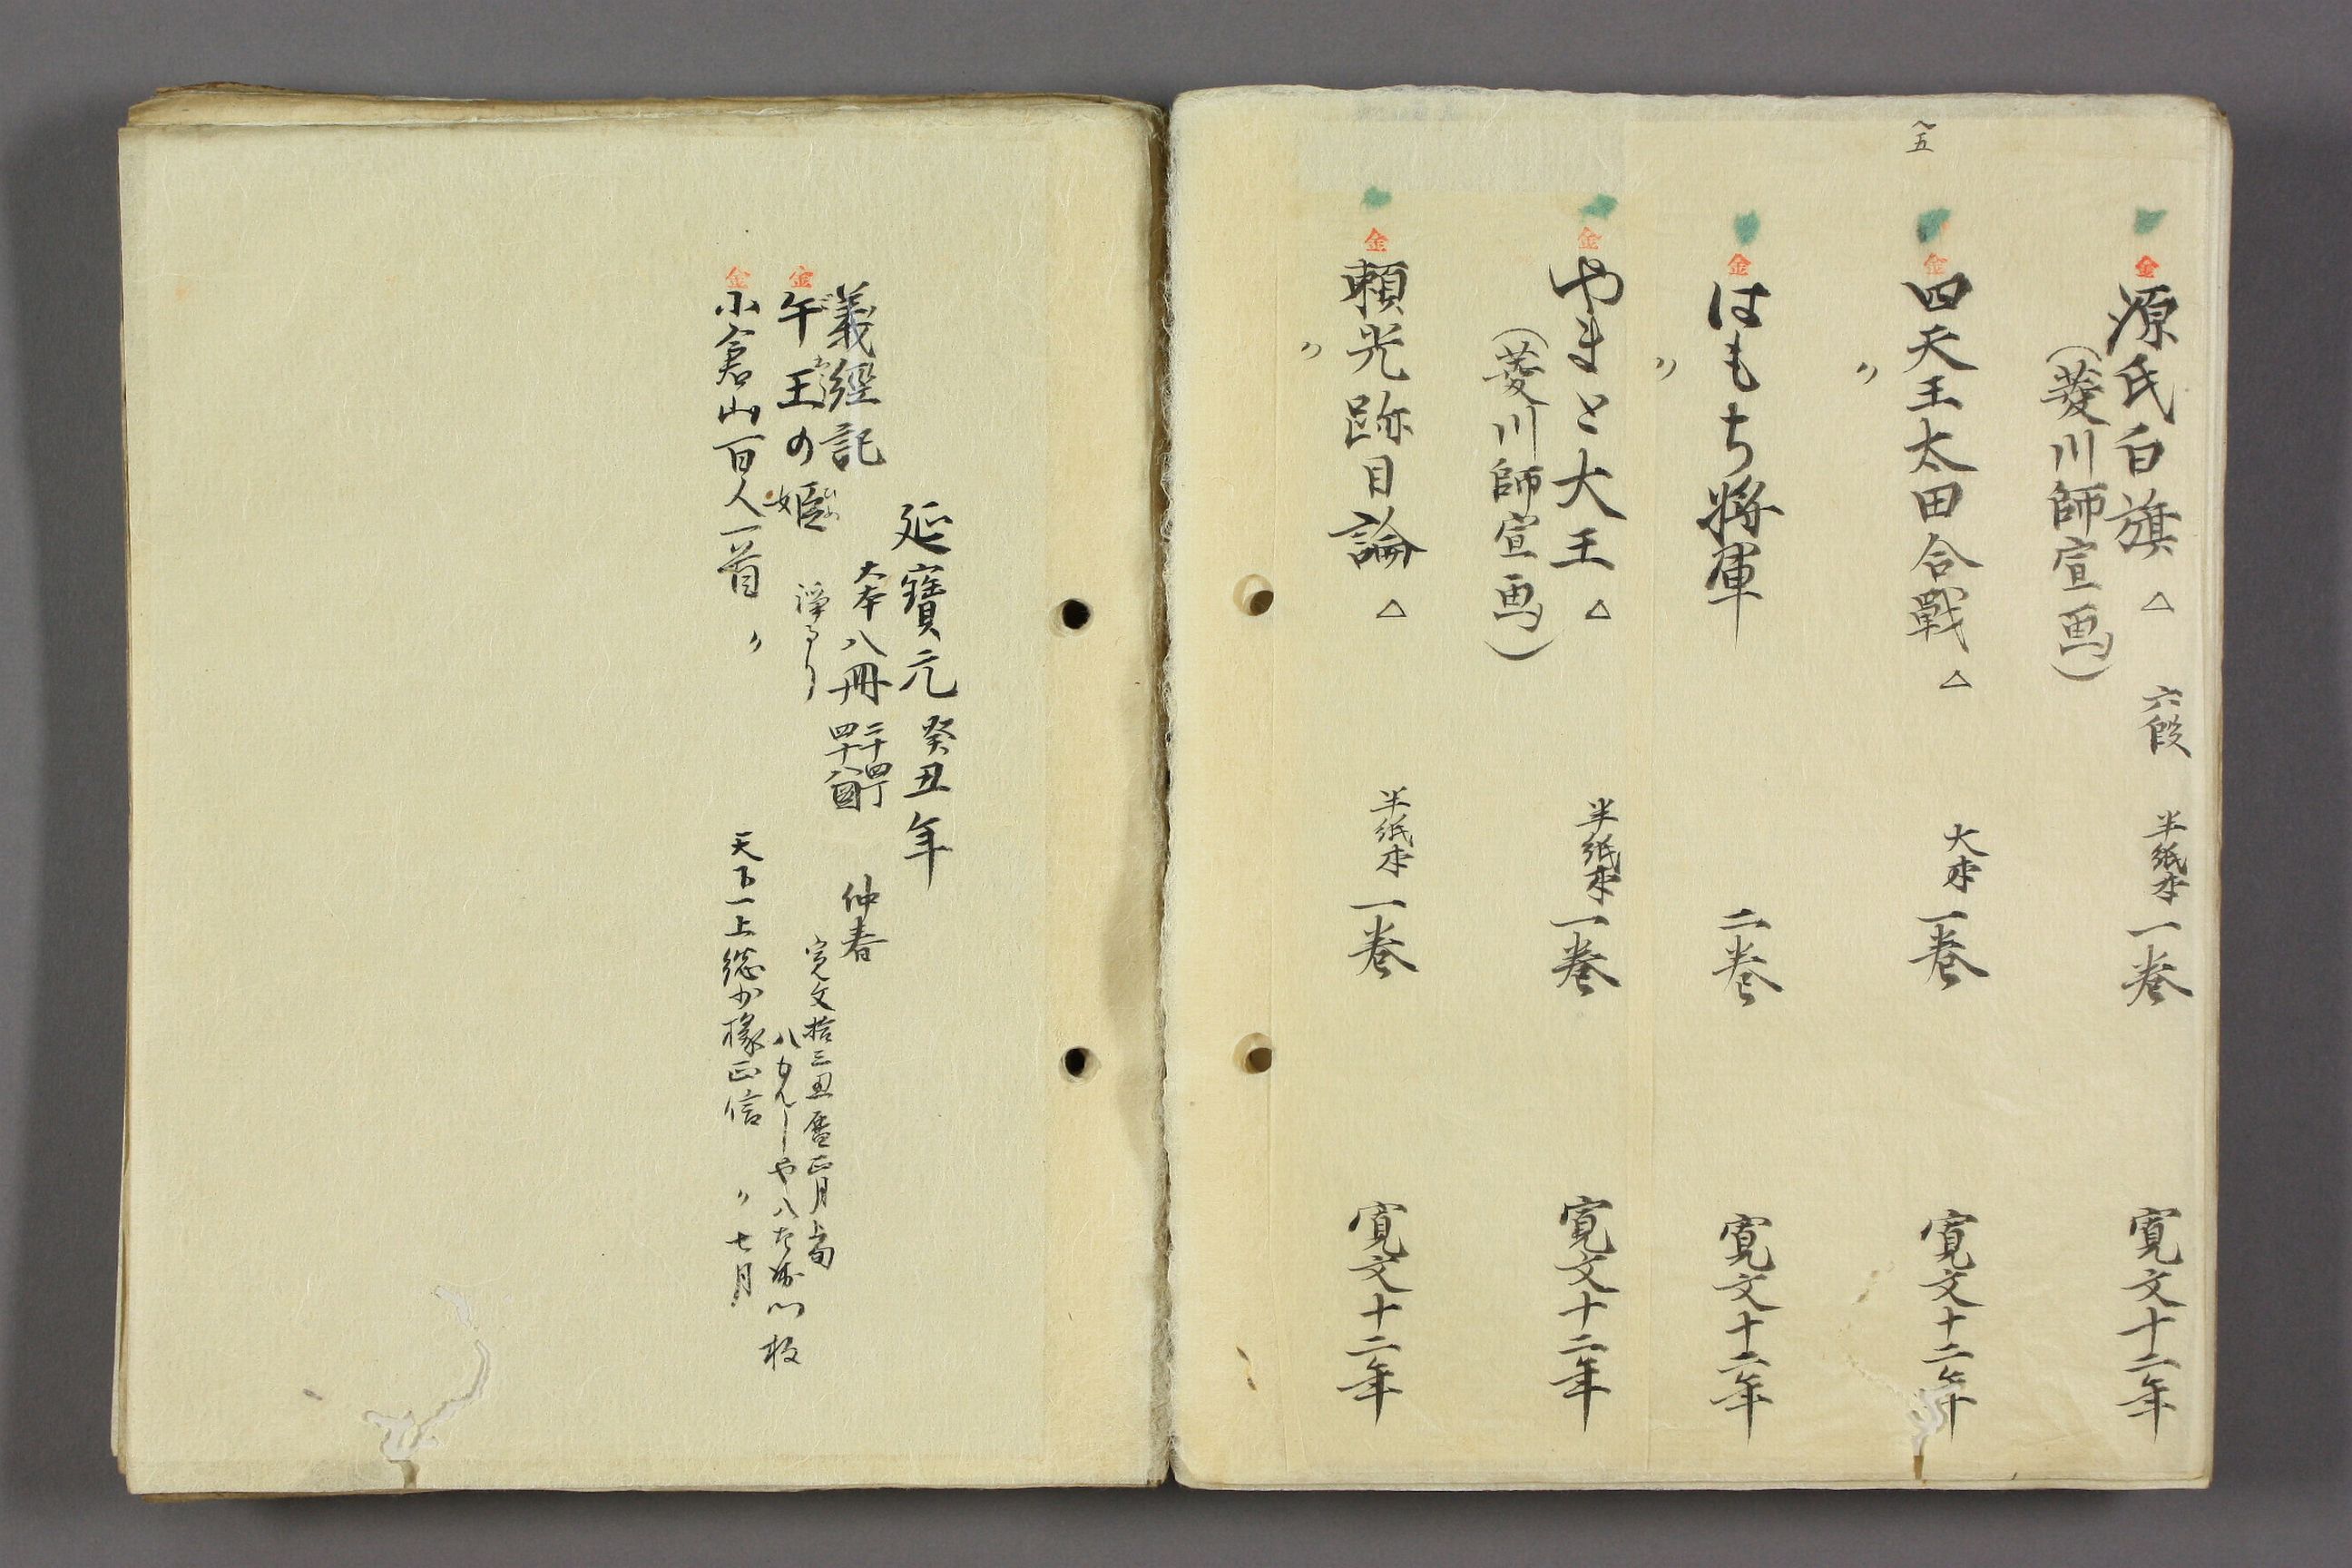 五
金 源氏白旗 △ 六段 半紙本 一巻 寛文十二年
(菱川師宣画)
金 四天王太田合戰 △ 大本 一巻 寛文十二年
〃
金 はもち将軍 二巻 寛文十二年
〃
金 やまと大王 △ 半紙本 一巻 寛文十二年
(菱川師宣画)
金 頼光跡目論 △ 半紙本 一巻 寛文十二年
〃
延寶元癸丑年
義經記 大本八冊 二十四丁 四十八圖 仲春
金 午王の姫 浄るり 寛文拾三丑暦正月上旬
八もんしや八左衛門板
金 小倉山百人一首 〃 天下一上総少掾正信 〃 七月